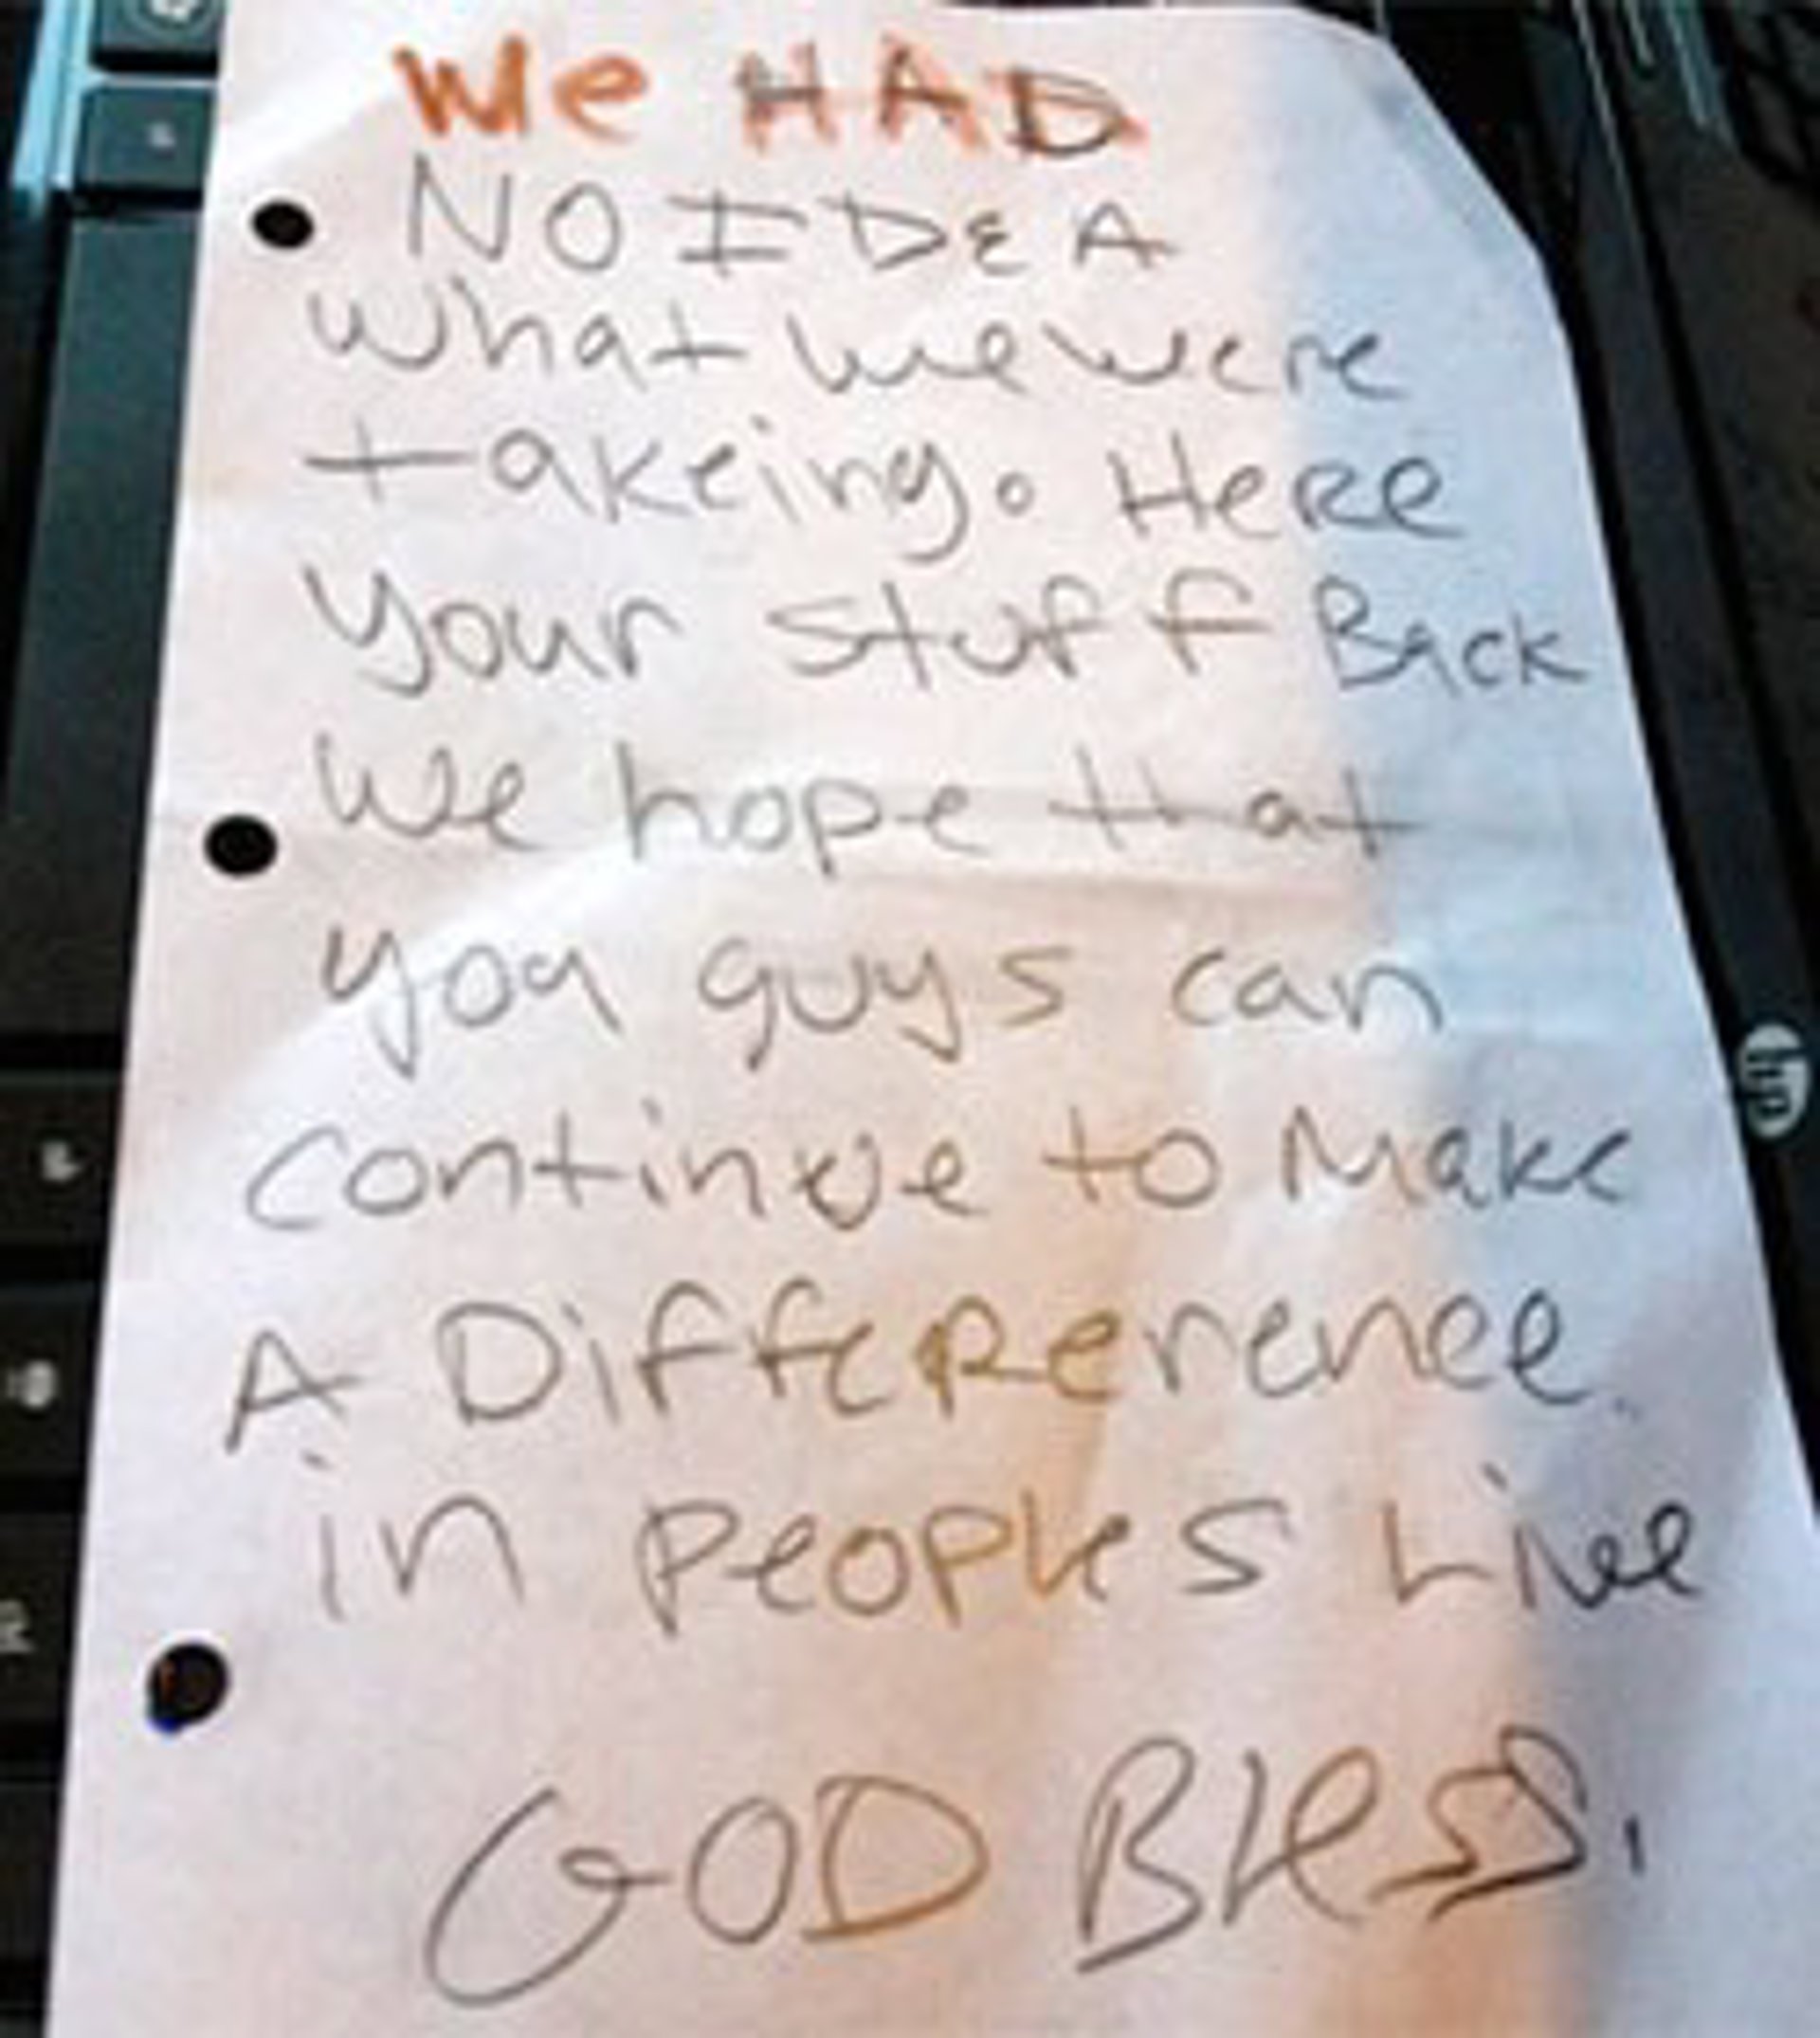 We HAD
NO IDEA
what we were
takeing. Here
your stuff Back
We hope that
you guys can
continue to Make
A Difference.
in peoples Live
GOD Bless.
hp